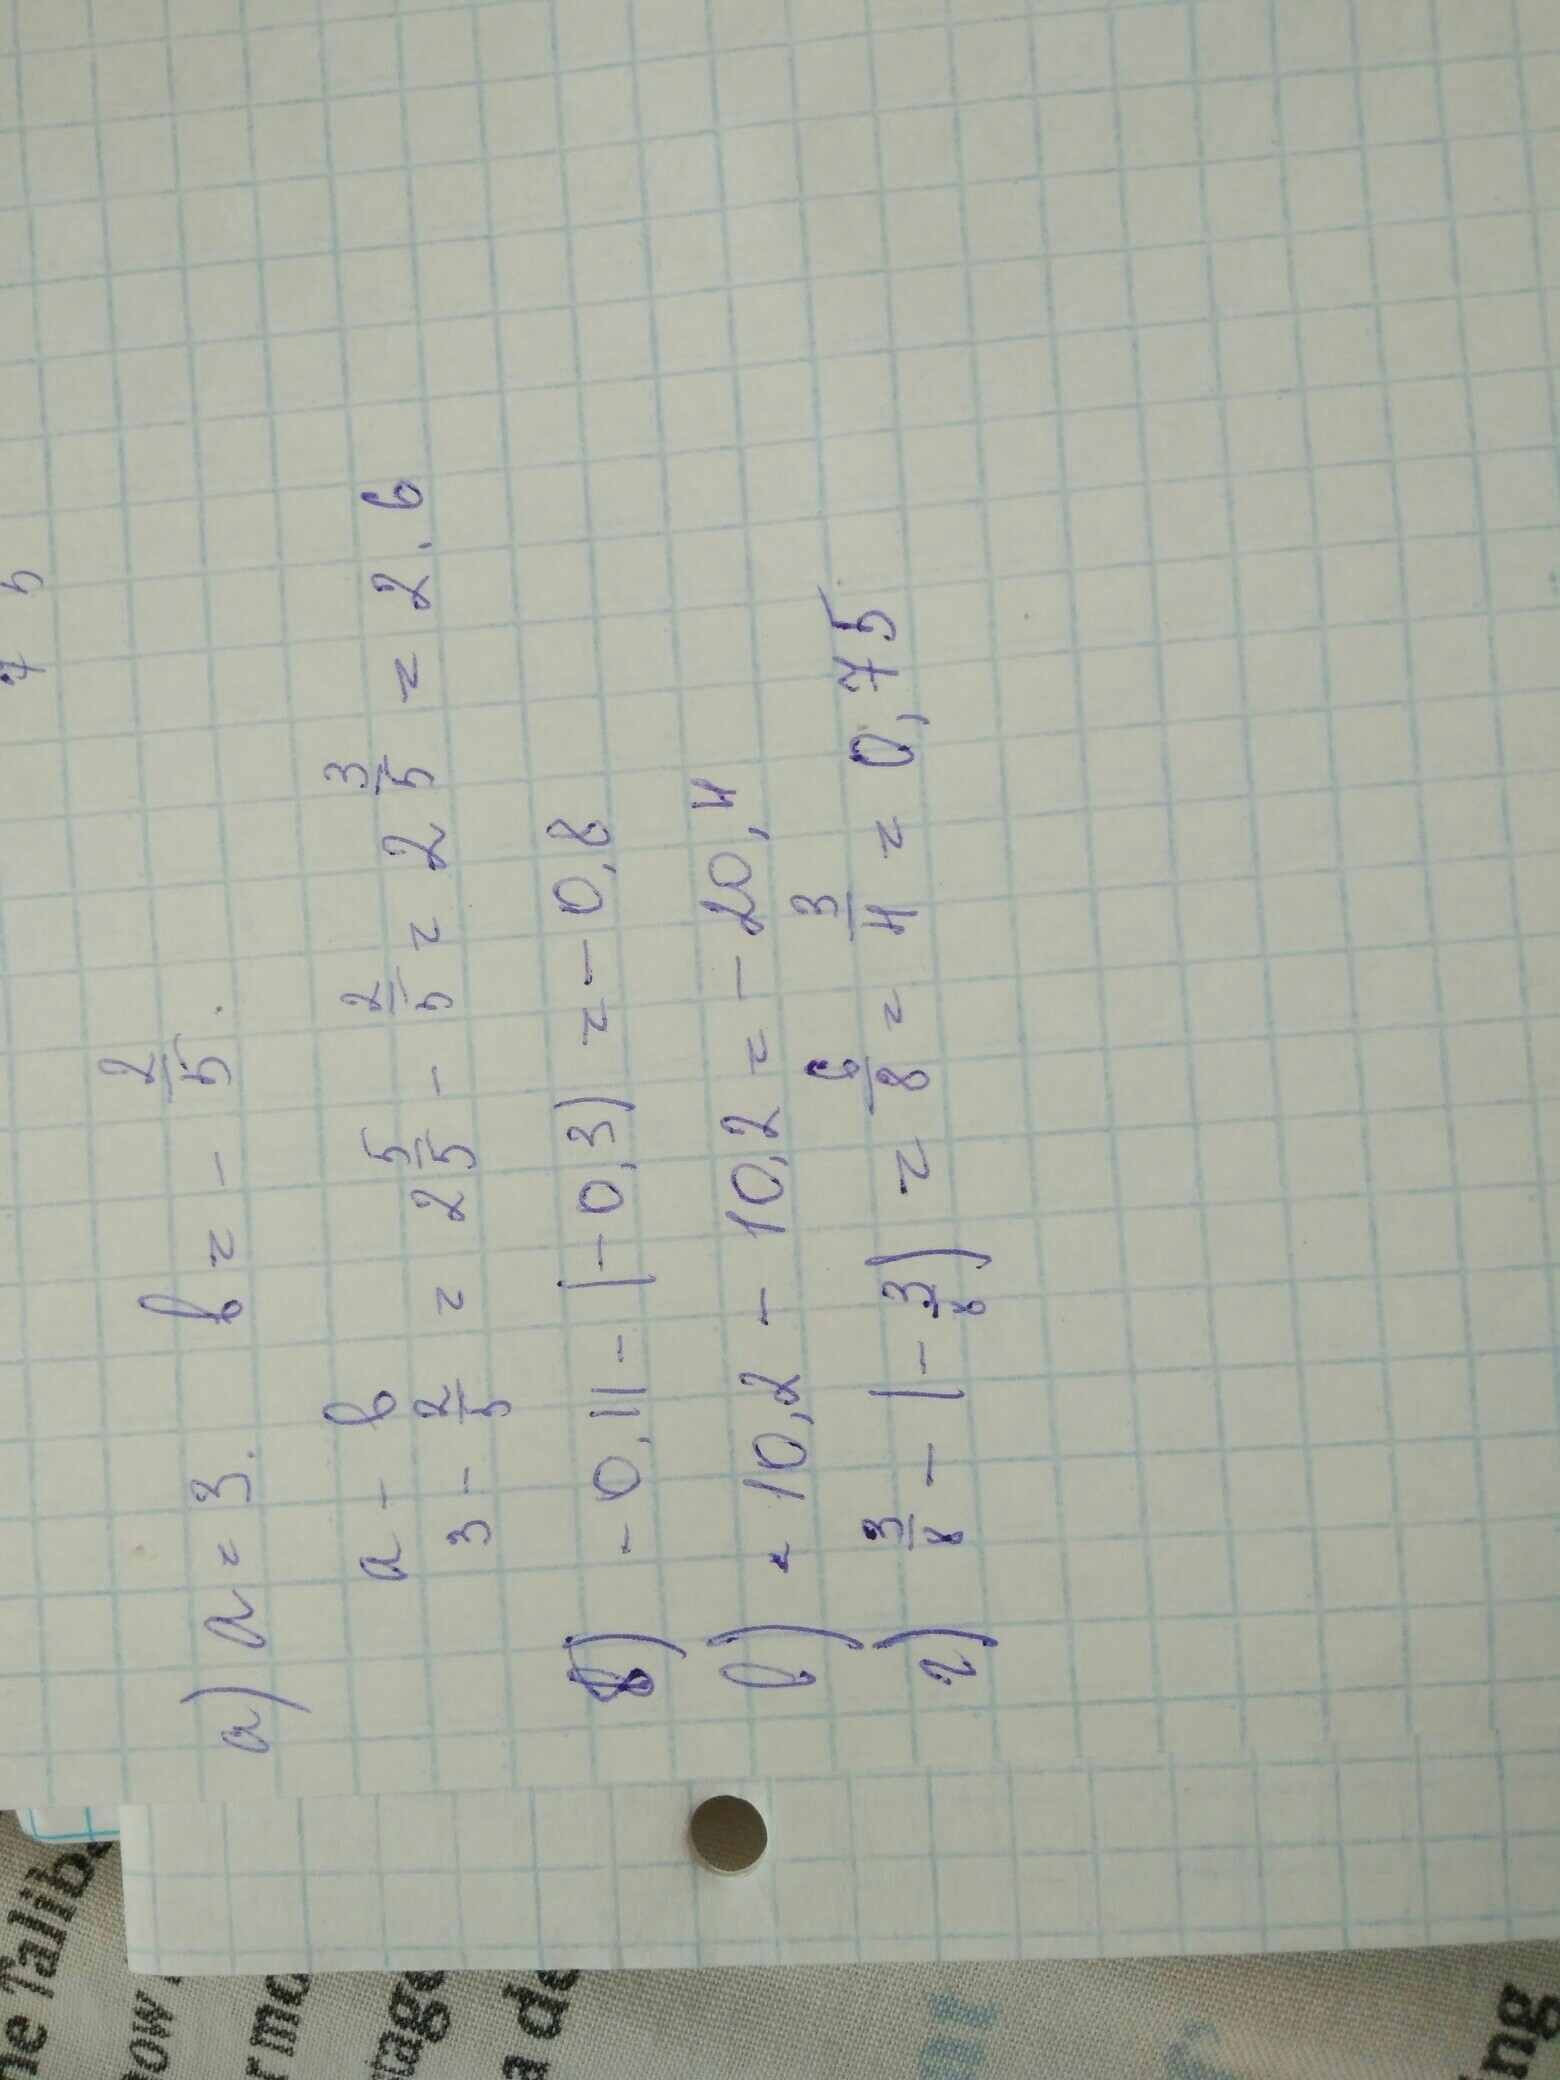 7 5
а) a = 3. b = - 2/5.
a - b
3 - 2/5 = 2 5/5 - 2/5 = 2 3/5 = 2.6
б) - 0,11 - (- 0,3) = - 0,8
в) - 10,2 - 10,2 = - 20,4
г) 3/8 - (- 3/8) = 6/8 = 3/4 = 0,75
he Taliba
now
rmo
age
a de
ing